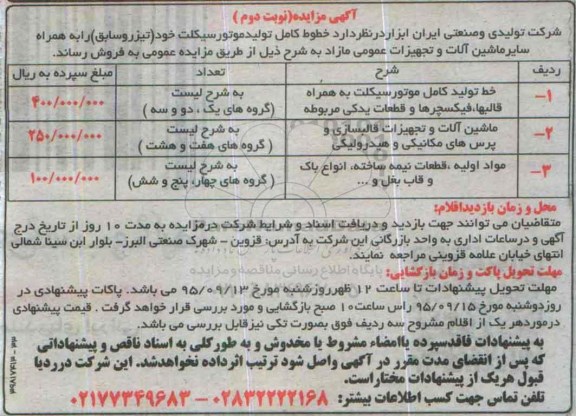 آگهی مزایده(نوبت دوم )
شرکت تولیدی وصنعتی ایران ابزاردرنظردارد خطوط کامل تولیدموتورسیکلت خود(تیزروسابق)رابه همراه
سایرماشین آلات و تجهیزات عمومی مازاد به شرح ذیل از طریق مزایده عمومی به فروش رساند.
ردیف شرح تعداد مبلغ سپرده به ریال
۱- خط تولید کامل موتورسیکلت به همراه به شرح لیست ۴۰۰/۰۰۰/۰۰۰
قالبها،فیکسچرها و قطعات یدکی مربوطه (گروه های یک ، دو و سه )
۲- ماشین آلات و تجهیزات قالبسازی و به شرح لیست ۲۵۰/۰۰۰/۰۰۰
پرس های مکانیکی و هیدرولیکی ( گروه های هفت و هشت )
۳- مواد اولیه ،قطعات نیمه ساخته، انواع باک به شرح لیست ۱۰۰/۰۰۰/۰۰۰
و قاب بغل و ... ( گروه های چهار، پنج و شش)
محل و زمان بازدیداقلام:
متقاضیان می توانند جهت بازدید و دریافت اسناد و شرایط شرکت درمزایده به مدت ۱۰ روز از تاریخ درج
آگهی و درساعات اداری به واحد بازرگانی این شرکت به آدرس: قزوین - شهرک صنعتی البرز- بلوار ابن سینا شمالی
انتهای خیابان علامه قزوینی مراجعه نمایند.
پایگاه اطلاع رسانی مناقصه و مزایده
مهلت تحویل پاکت و زمان بازگشایی:
مهلت تحویل پیشنهادات تا ساعت ۱۲ ظهرروزشنبه مورخ ۹۵/۰۹/۱۳ می باشد. پاکات پیشنهادی در
روزدوشنبه مورخ ۹۵/۰۹/۱۵ راس ساعت۱۰ صبح بازگشایی و مورد بررسی قرار خواهد گرفت . قیمت پیشنهادی
درموردهر یک از اقلام مشروح سه ردیف فوق بصورت تکی نیزقابل بررسی می باشد.
به پیشنهادات فاقدسپرده یاامضاء مشروط یا مخدوش و به طورکلی به اسناد ناقص و پیشنهاداتی
که پس از انقضای مدت مقرر در آگهی واصل شود ترتیب اثرداده نخواهدشد. این شرکت درردیا
قبول هریک از پیشنهادات مختار است.
تلفن تماس جهت کسب اطلاعات بیشتر: ۰۲۸۳۲۲۲۲۱۶۸ - ۰۲۱۷۷۳۴۹۶۸۳